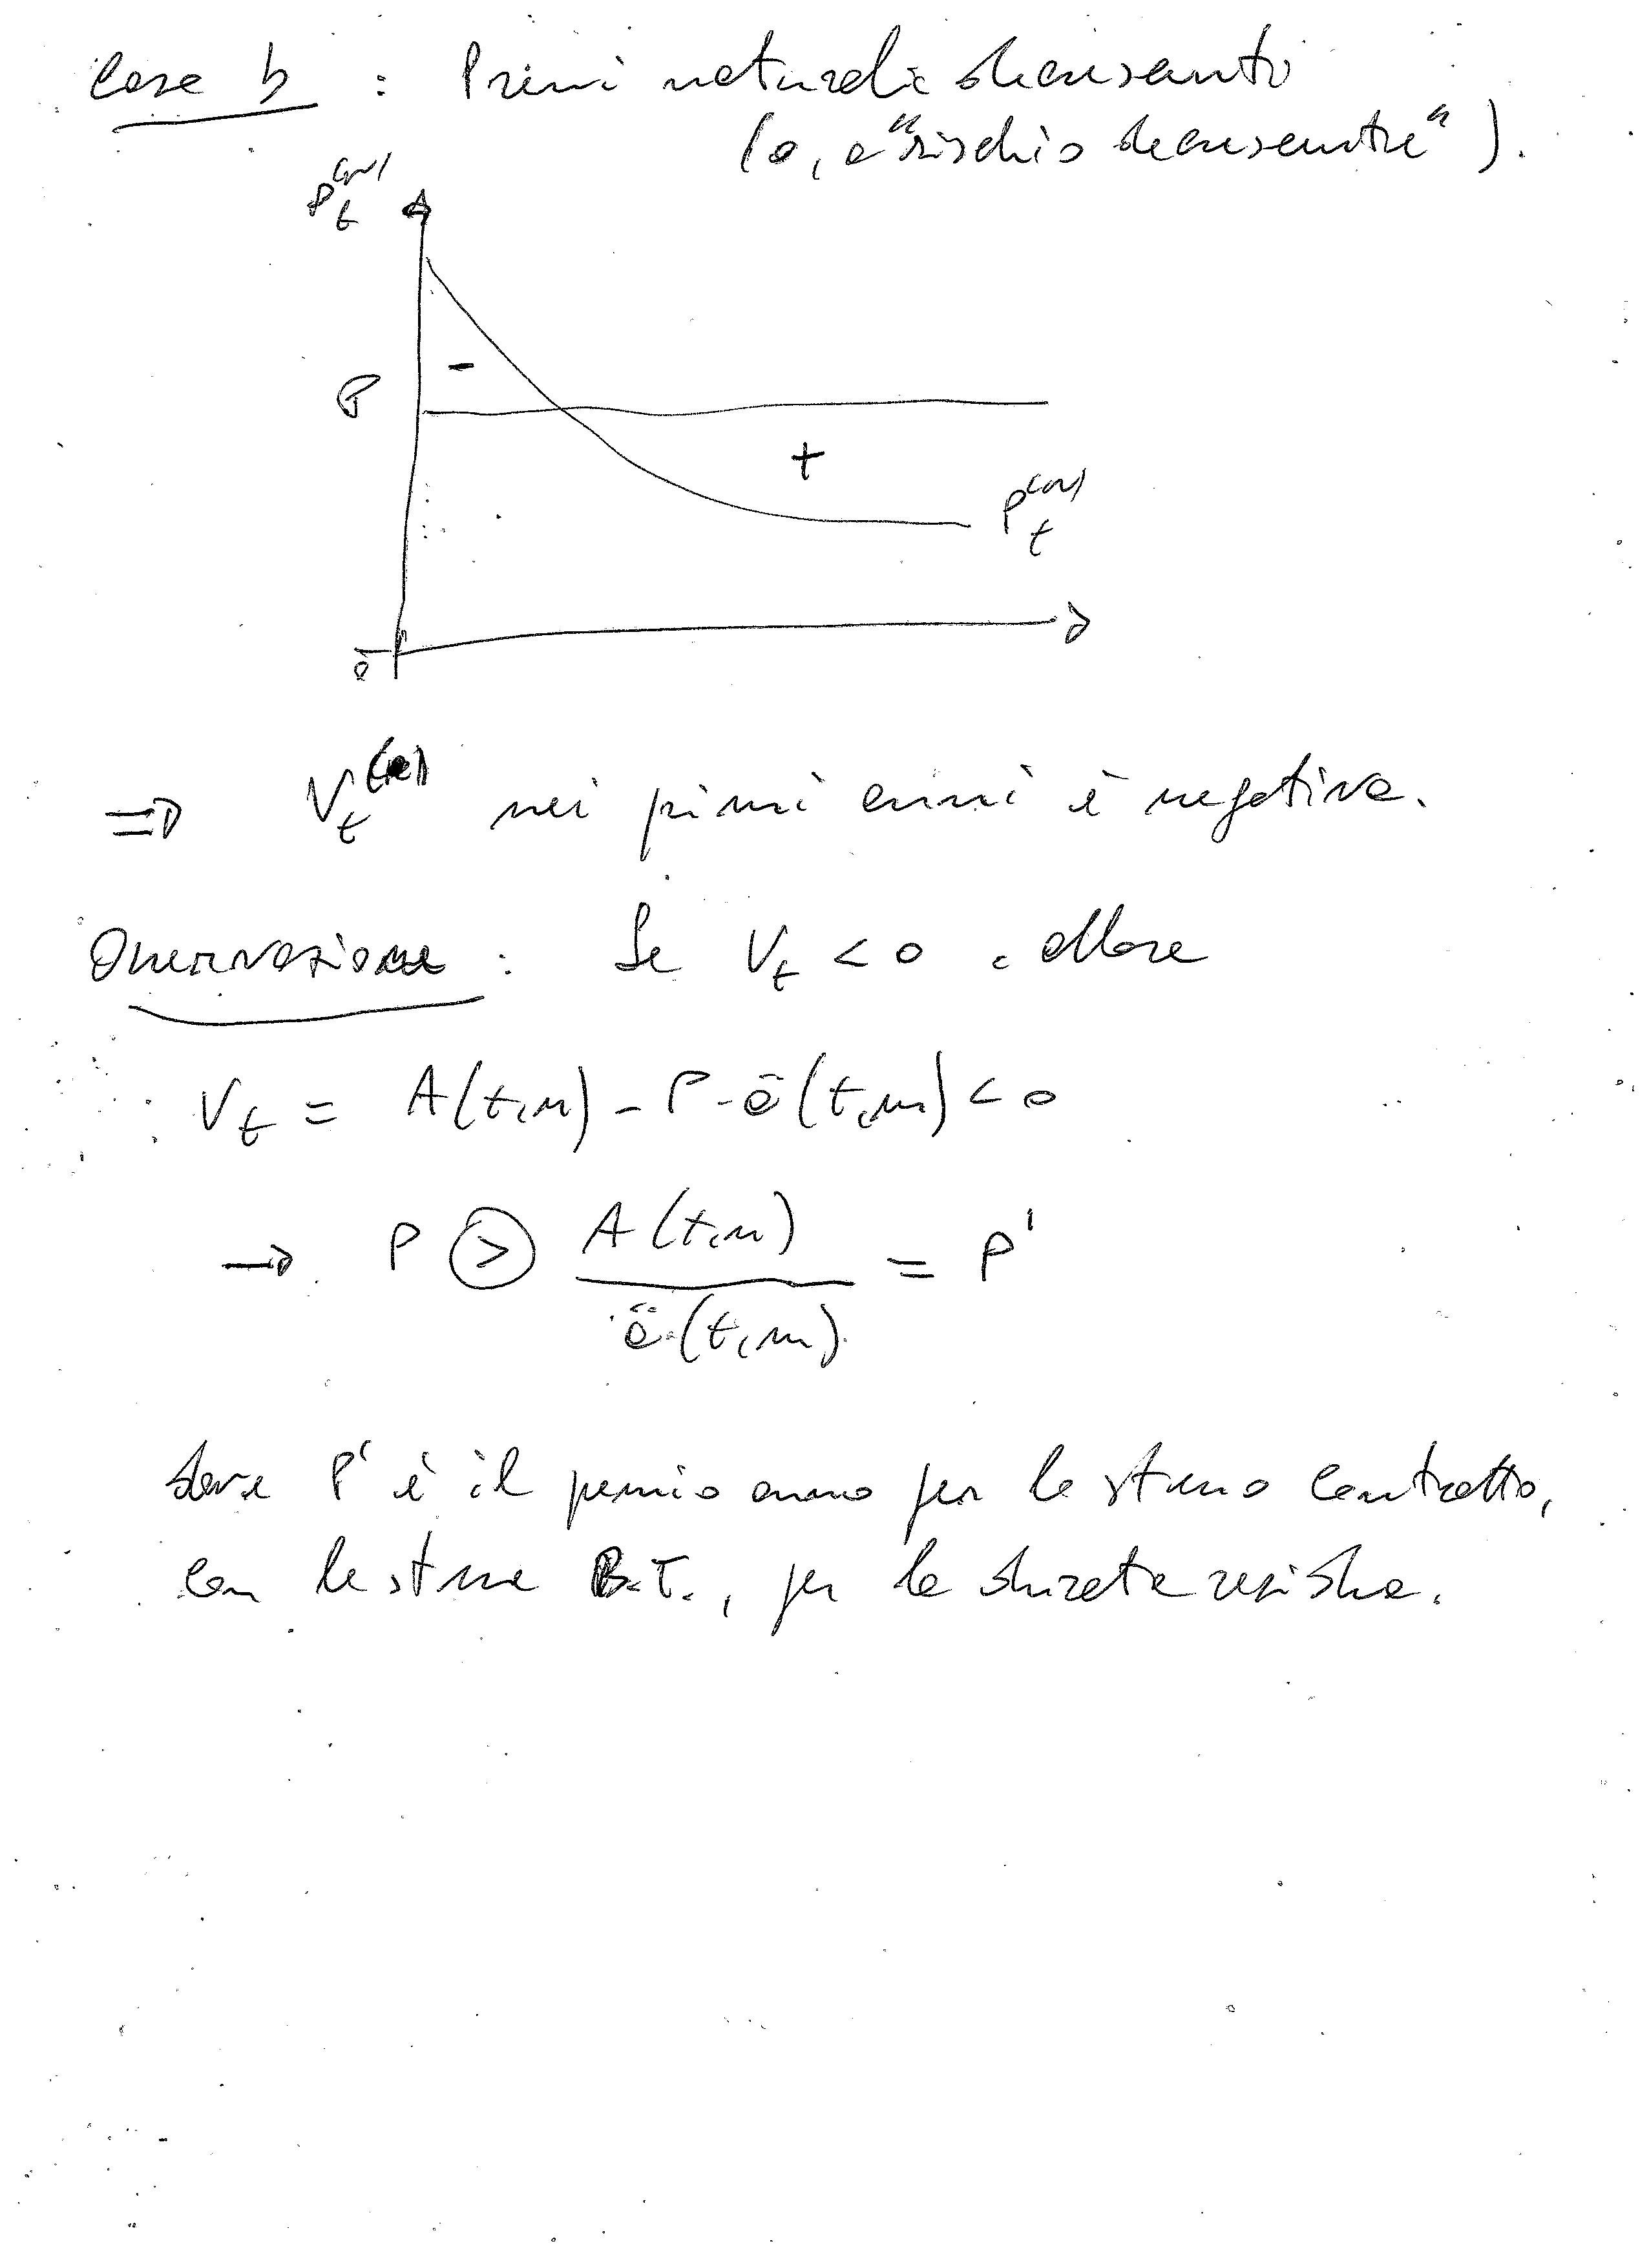 Caso b : Premi naturali decrescenti
(o, a "rischio decrescente").
P_t^(N)
P
-
+
P_t^(N)
0
=> V_t nei primi anni è negativa.
Osservazione : Se V_t < 0, allora
V_t = A(t,n) - P·ä(t,m) < 0
→ P > A(t,n) / ä(t,m) = P'
dove P' è il premio annuo per lo stesso contratto,
con le stesse B.T., per la durata residua.